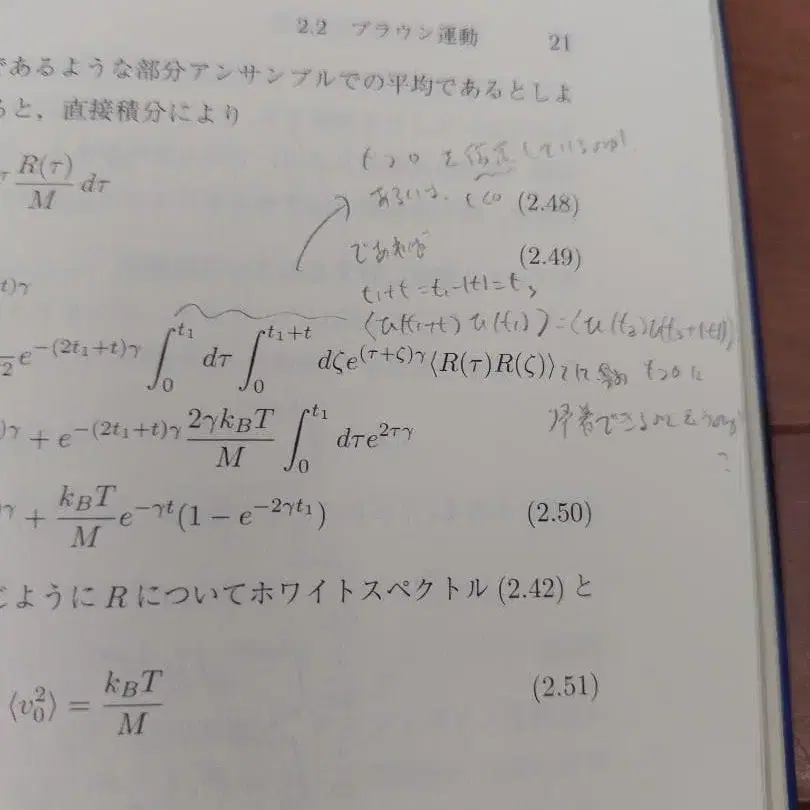 2.2 ブラウン運動 21
であるような部分アンサンブルでの平均であるとしよ
ると，直接積分により
t>0 を仮定しているのか
R(τ)/M dτ
あるいは、t<0 (2.48)
であれば (2.49)
t)γ
t₁+t=t₁-|t|=t₃
⟨u(t₁+t) u(t₁)⟩=⟨u(t₃)u(t₃+|t|)⟩
e^{-(2t₁+t)γ} ∫₀^{t₁} dτ ∫₀^{t₁+t} dζe^{(τ+ζ)γ}⟨R(τ)R(ζ)⟩
t>0に
)γ + e^{-(2t₁+t)γ} 2γk_BT/M ∫₀^{t₁} dτe^{2τγ}
帰着できる
?
γ + k_BT/M e^{-γt}(1 − e^{-2γt₁}) (2.50)
ように R についてホワイトスペクトル (2.42) と
⟨v₀²⟩ = k_BT/M (2.51)